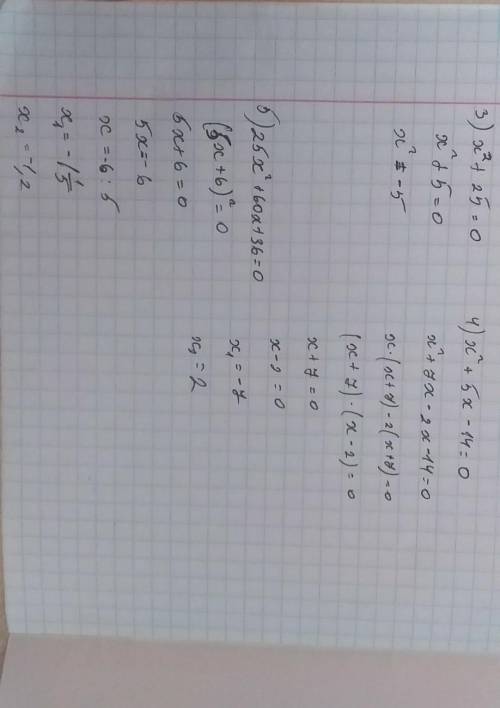 3) x² + 25 = 0
x² + 5 = 0
x² ≠ -5
4) x² + 5x - 14 = 0
x² + 7x - 2x - 14 = 0
x · (x + 7) - 2(x + 7) = 0
(x + 7) · (x - 2) = 0
x + 7 = 0
x - 2 = 0
x₁ = -7
x₂ = 2
5) 25x² + 60x + 36 = 0
(5x + 6)² = 0
5x + 6 = 0
5x = - 6
x = -6 : 5
x₁ = -1 1/5
x₂ = -1,2